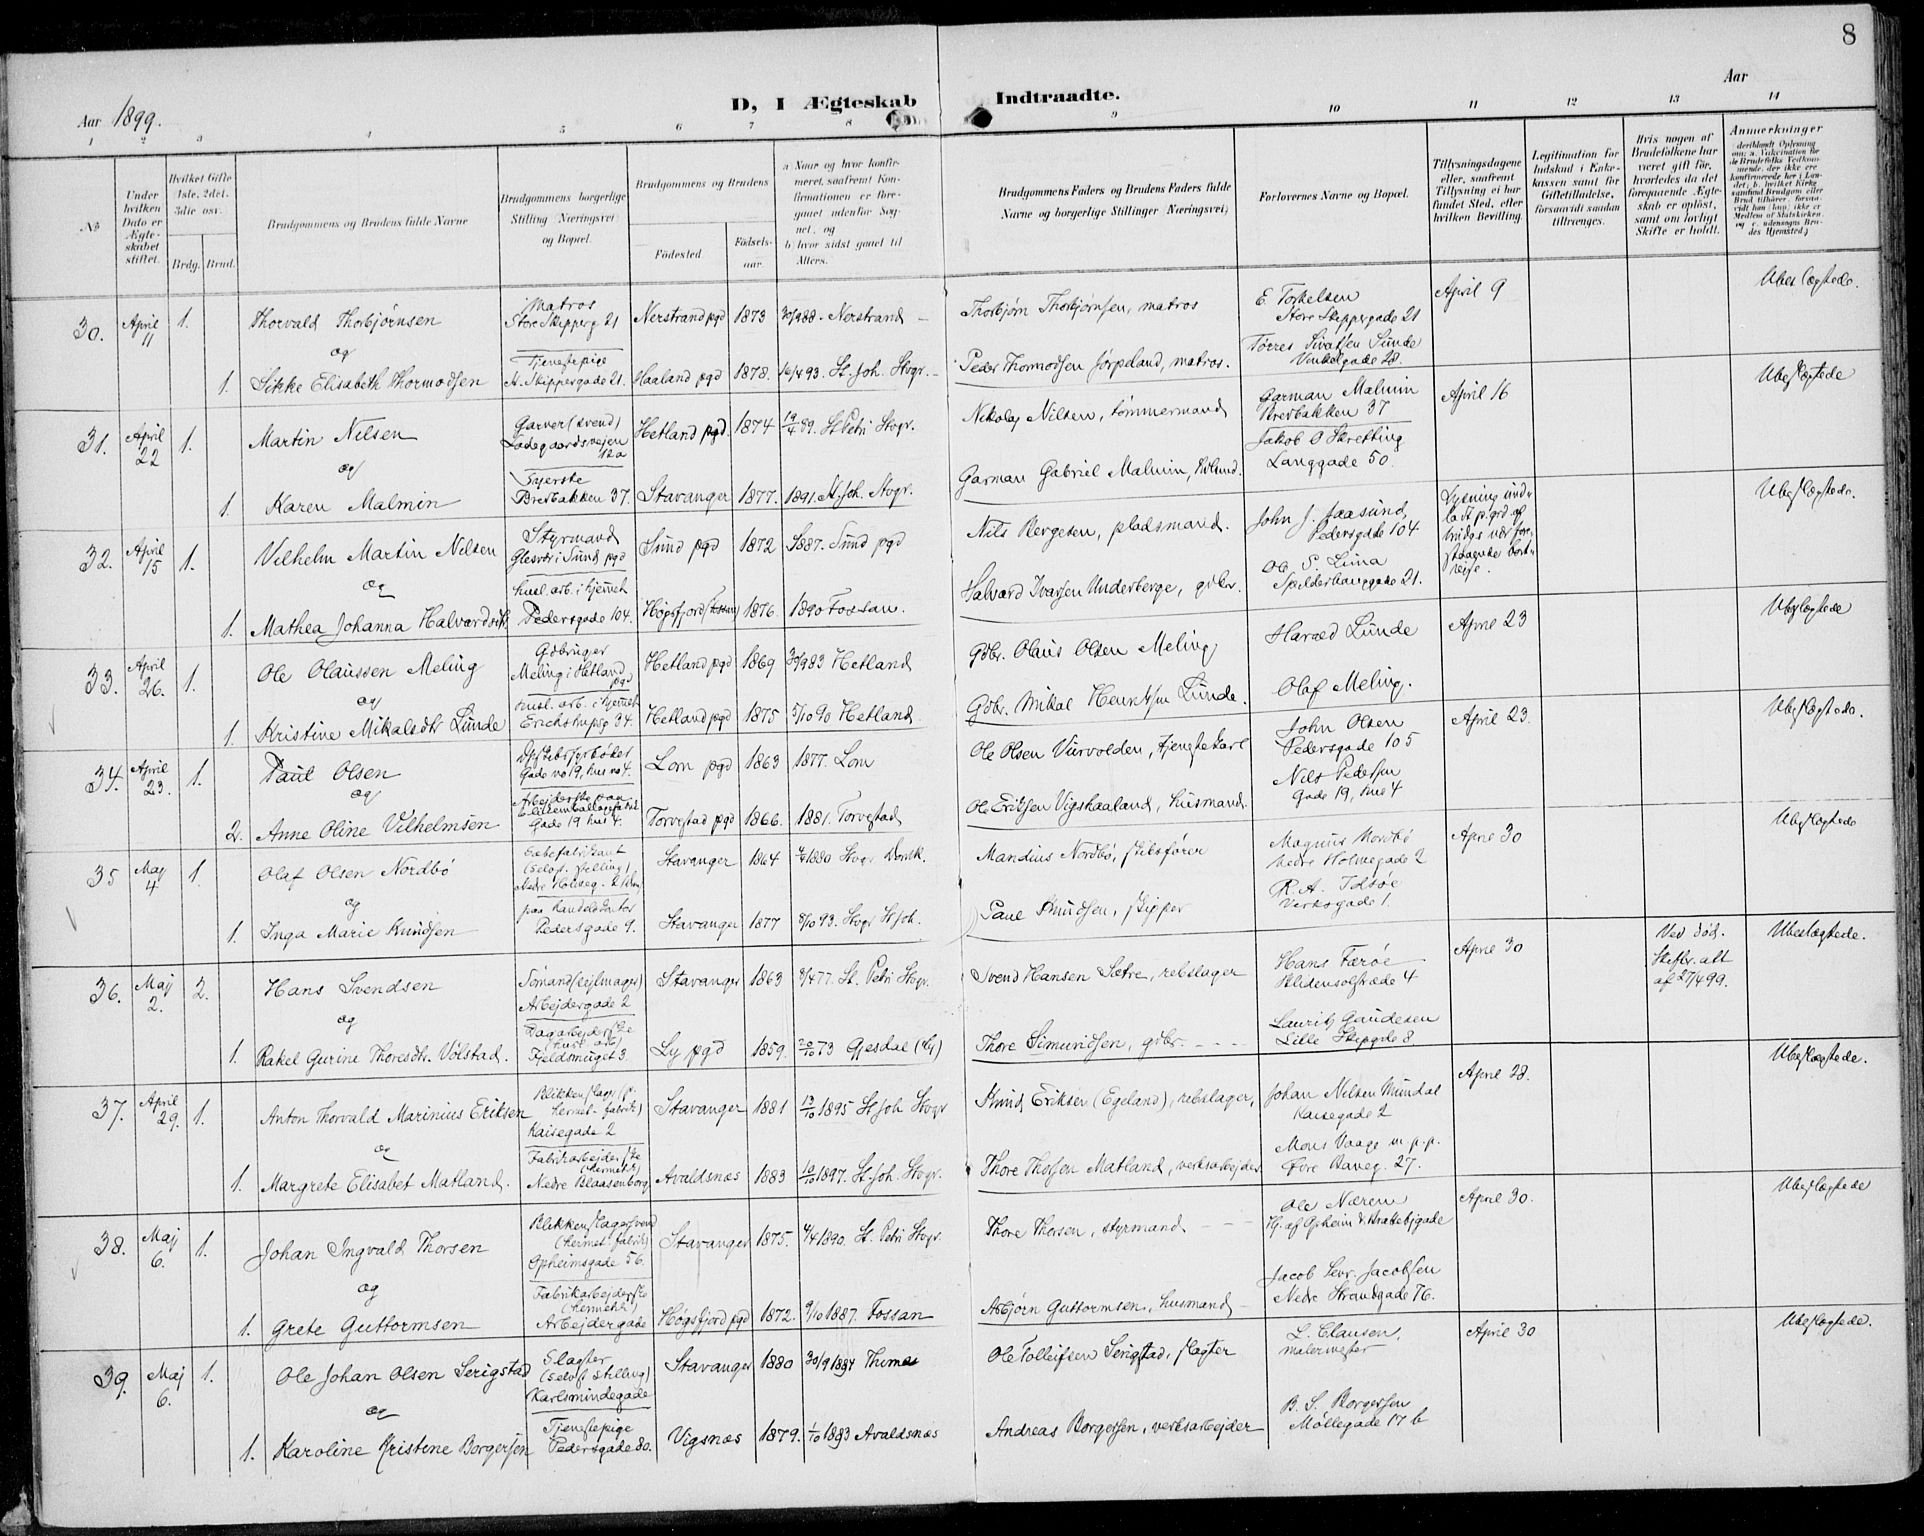 8
Aar 1899.
D, I Ægteskab Indtraadte.
Aar
1 2 3 4 5 6 7 8 9 10 11 12 13 14
No
Under hvilken Dato er Ægteskabet stiftet.
Hvilket Gifte 1ste, 2det, 3die osv.
Brdg. Brud.
Brudgommens og Brudens fulde Navne
Brudgommens borgerlige Stilling (Næringsvei) og Bopæl.
Brudgommens og Brudens
Fødested
Fødselsaar.
a Naar og hvor konfirmeret, saafremt Konfirmationen er foregaaet udenfor Sognet, og
b) hvor sidst gaaet til Alters.
Brudgommens Faders og Brudens Faders fulde Navne og borgerlige Stillinger (Næringsvei)
Forlovernes Navne og Bopæl.
Tillysningsdagene eller, saafremt Tillysning ei har fundet Sted, efter hvilken Bevilling.
Legitimation for Indskud i Enkekassen samt for Giftetilladelse, forsaavidt saadan tiltrænges.
Hvis nogen af Brudefolkene har været gift før, hvorledes da det foregaaende Ægteskab er opløst, samt om lovligt Skifte er holdt.
Anmerkninger
30. April 11 1. Thorvald Thorbjørnsen Matros Store Skipperg 21 Nerstrand pgd 1873 30/9 88. Nerstrand Thorbjørn Thorbjørnsen, matros E. Torkelsen Store Skippergade 21 April 9 Ubeslægtede.
og
1. Sikke Elisabeth Thormodsen Tjenestepige St. Skippergade 21. Haaland pgd 1878. 93. St. Joh. Stvgr. Peder Thormodsen Jørpeland, matros. Tørres Sivertsen Sunde Vinkelgade 28.
31. April 22 1. Martin Nilsen Garver (svend) Ladegaardsveien 12a Hetland pgd. 1874 19/4 89. St Petri Stvgr. Nikolaj Nilsen, tømmermand Garman Malmin Bredbakken 37 April 16 Ubeslægtede
og
1. Karen Malmin Bredbakken 37. Stavanger 1877. 1891. St. Joh. Stvgr. Garman Gabriel Malmin, Jakob O Skretting Langgade 50.
32. April 15 1. Vilhelm Martin Nilsen Styrmand Glesvær i Sund pgd Sund pgd 1872 1887. Sund pgd Nils Bergesen, pladsmand. John J. Jaasund, Pedersgade 104 Ubeslægtede.
og
1. Mathea Johanna Halvardsdtr husl. arb. i hjemmet Pedersgade 104. Høgsfjord (Fossan) 1876. 1890 Fossan. Halvard Ivarsen Underberge, gdbr. Ole S. Lima Spilderhauggade 21.
33. April 26. 1. Ole Olaussen Meling Gdbruger Meling i Hetland pgd Hetland pgd 1869 30/9 83 Hetland Gdbr. Olaus Olsen Meling Harald Lunde April 23 Ubeslægtede
og
1. Kristine Mikalsdtr Lunde husl. arb. i hjemmet Erichstrupsg 34. Hetland pgd 1875 5/10 90 Hetland Gdbr. Mikal Henriksen Lunde. Olaf Meling.
34. April 23. 1. Paul Olsen Gade no 19, hus no 4. Lom pgd 1863 1877. Lom Ole Olsen Vurvolden, tjenestekarl John Olsen Pedersgade 105 April 23. Ubeslægtede.
og
2. Anne Oline Vilhelmsen Arbejderske paa Gade 19 hus 4. Torvestad pgd 1866. 1881. Torvestad Ole Eriksen Vigshaaland, husmand. Nils Pedersen Gade 19, hus 4
35 Maj 4 1. Olaf Olsen Nordbø Sæbefabrikant (Selvst. stilling) Nedre Holmeg. 2 Stavanger 1864 1880 Stvgr Domk. Mandius Nordbø, skibsfører Magnus Nordbø Nedre Holmegade 2 April 30 Ubeslægtede
og
1. Inga Marie Knudsen paa Handelskontor Pedersgade 9. Stavanger 1877 8/10 93. Stvgr St Joh. Paul Knudsen, skipper R. A. Idsøe Verksgade 1.
36. Maj 2. 2. Hans Svendsen Sømand (sejlmager) Arbejdergade 2 Stavanger 1863 8/4 77. St. Petri Stvgr. Svend Hansen Sætre, rebslager Hans Færøe Blidensolstræde 4 April 30 Ved død. Skiftebr. alt af 27/4 99. Ubeslægtede.
og
1. Rakel Gurine Thoresdtr. Vølstad. Dagarbejderske (husl. arb) Fjeldsmuget 3. Ly pgd 1859. 20/10 73 Gjesdal (Ly) Thore Simundsen, gdbr. Laurits Gaudesen Lille Skipgde 8
37. April 29. 1. Anton Thorvald Marinius Eriksen Blikkenslager (p. hermet. fabrik) Kaisegade 2 Stavanger 1881 13/10 1895 St Joh Stvgr Knud Eriksen (Egeland), rebslager, Johan Nilsen Mundal Kaisegade 2 April 28. Ubeslægtede.
og
1. Margrete Elisabet Matland. Fabrikarbejderske (Hermetik) Nedre Blaasenborg Avaldsnæs 1883 10/10 1897. St. Joh. Stvgr. Thore Thorsen Matland, verksarbejder Mons Vaage m.p.p. Øvre Baneg. 27.
38. Maj 6. 1. Johan Ingvald Thorsen Blikkenslagersvend (hermet. fabrik) Opheimsgade 56. Stavanger 1875. 4/4 1890. St. Petri Stvgr. Thore Thorsen, styrmand Ole Næren Hj. af Opheim & Brattebjgade April 30. Ubeslægtede
og
1. Grete Guttormsen Fabrikarbejderske (hermetik) Arbejdergade Høgsfjord pgd 1872. 9/10 1887. Fossan Asbjørn Guttormsen, husmand Jacob Sevr. Jacobsen Nedre Strandgade 76.
39. Maj 6. 1. Ole Johan Olsen Serigstad Slagter (Selvst. stilling) Karlsmindegade Stavanger 1880 30/9 1894 Thime Ole Tolleifsen Serigstad, slagter L. Clausen, malermester April 30 Ubeslægtede.
og
1. Karoline Kristene Borgersen Tjenestepige Pedersgade 80. Vigsnæs 1879. 1/10 1893 Avaldsnæs Andreas Borgersen, verksarbejder B. S. Borgersen Møllegade 17 b